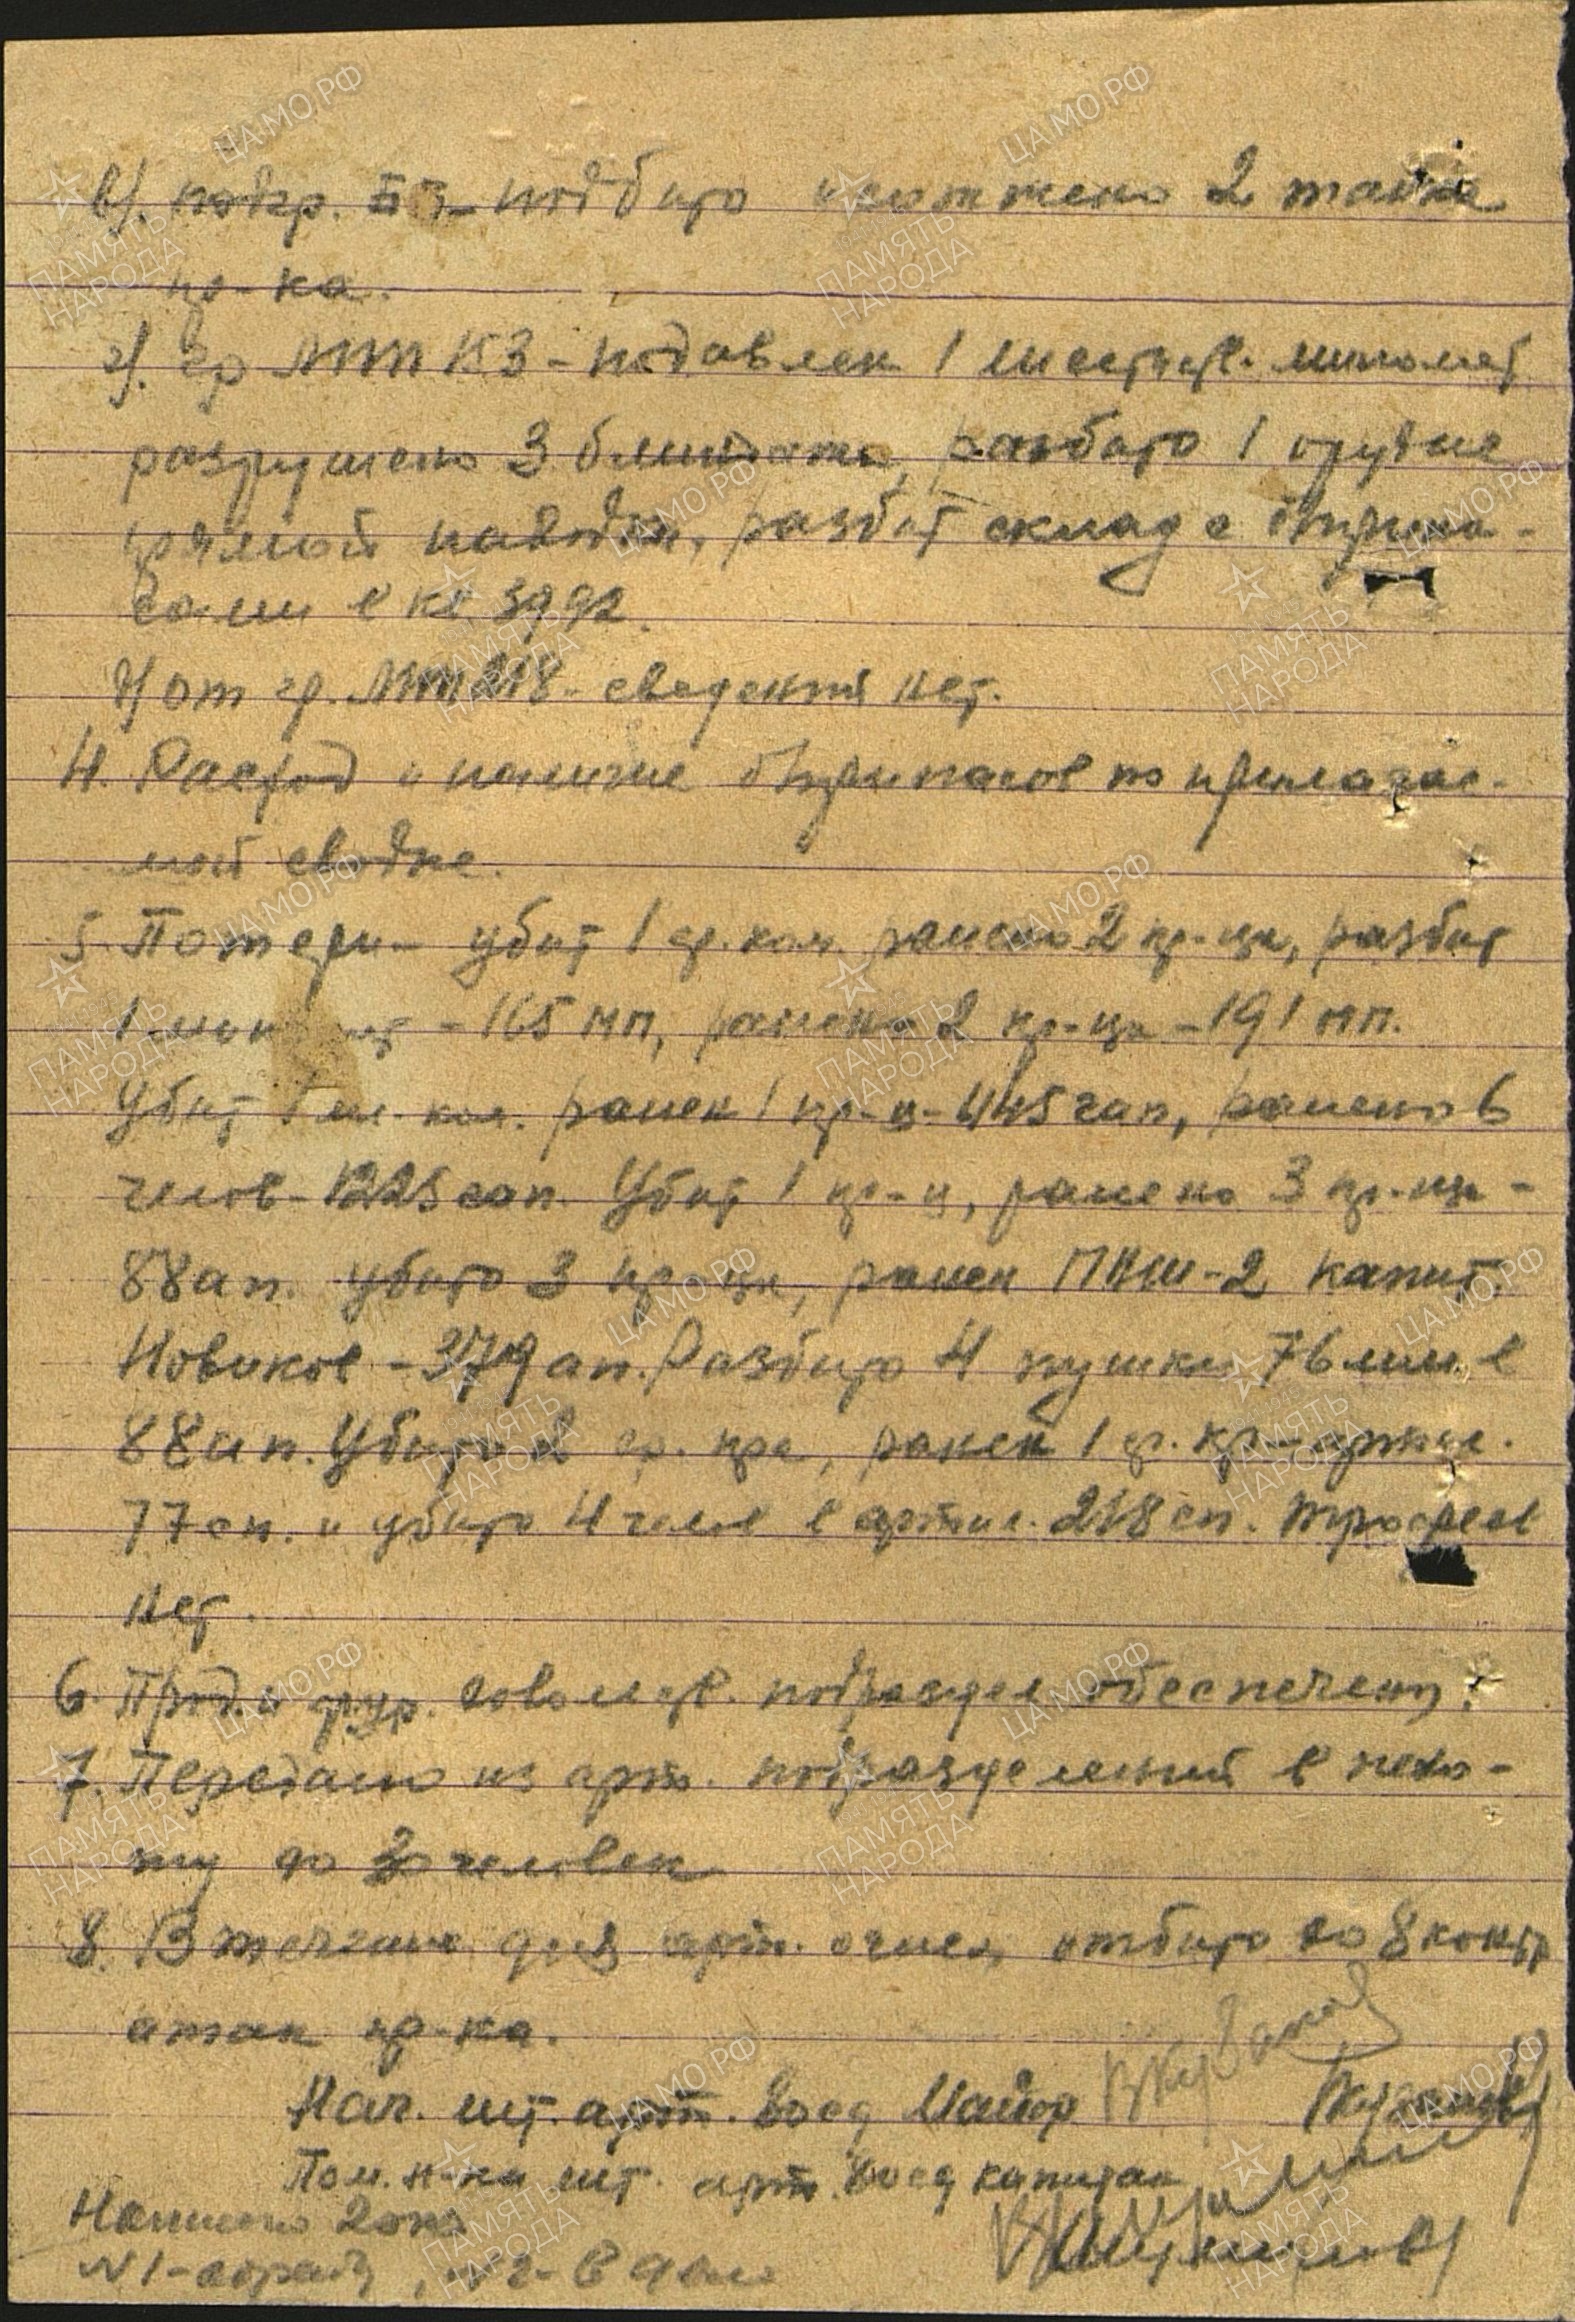 в). подгр. БЗ - подбито и сожжено 2 танка
пр-ка.
г). гр ПП 153 - подавлен 1 шестств. миномет
разрушено 3 блиндажа, разбито 1 орудие
прямой наводки, разбит склад с боеприпа-
сами в кв. 3992.
д) от гр. ПП 218 - сведений нет.
4. Расход и наличие боеприпасов по прилагае-
мой сводке.
5. Потери - убит 1 ср. ком. ранено 2 кр-ца, разбит
1 миномет - 165 мп, ранено 2 кр-ца - 191 мп.
Убит 1 мл. ком. ранен 1 кр-ц - 445 гап, ранено 6
челов - 1225 гап. Убит 1 кр-ц, ранено 3 кр-ца -
88 ап. убито 3 кр-ца, ранен ПНШ-2 капит.
Новиков - 379 ап. Разбито 4 пушки 76 мм. в
88 ап. Убито 2 ранен 1
77 сп. и убито 4 челов в артил. 218 сп. Трофеев
нет.
6. Прод. и фур. подраздел обеспечены.
7. Передано из арт. подразделений в пехо-
ту до человек
8. В течение дня арт. огнем отбито до 8 контр
атак пр-ка.
Нач. шт. арт. майор
Пом. н-ка шт. арт. капитан
Написано 2 экз
N1-адресат, N2-в дело
ЦАМО.РФ
ПАМЯТЬ НАРОДА